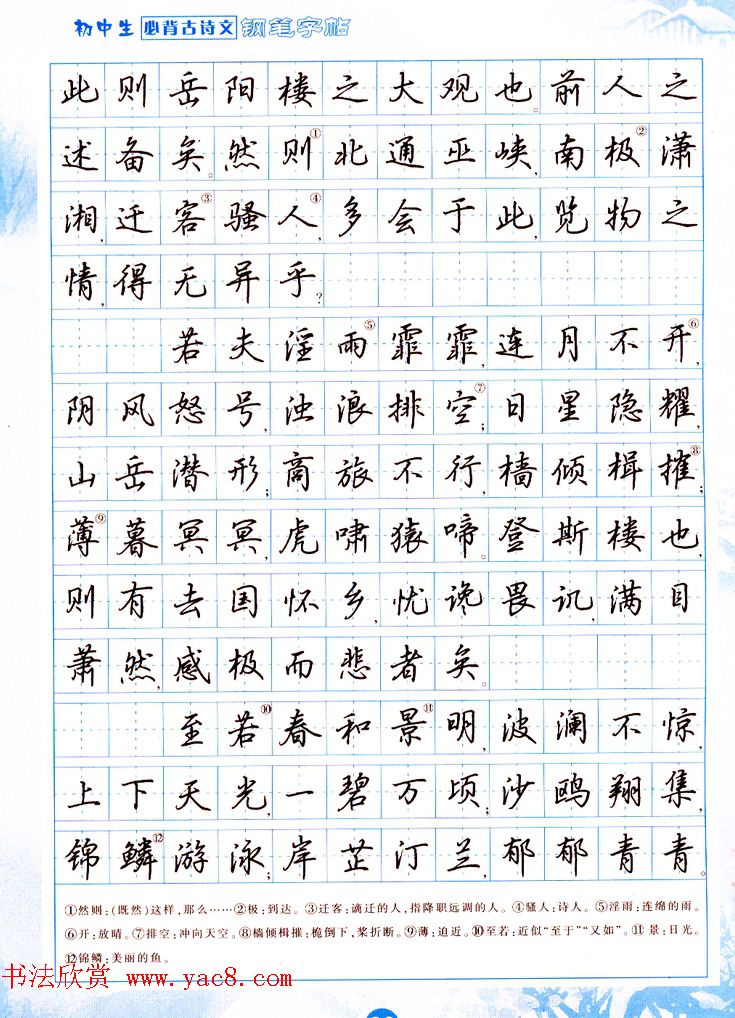 初中生必背古诗文钢笔字帖
此则岳阳楼之大观也。前人之
述备矣。然则①北通巫峡,南极②潇
湘,迁客③骚人④,多会于此,览物之
情,得无异乎?
若夫淫雨⑤霏霏,连月不开⑥,
阴风怒号,浊浪排空⑦;日星隐耀,
山岳潜形;商旅不行,樯倾楫摧⑧;
薄⑨暮冥冥,虎啸猿啼。登斯楼也,
则有去国怀乡,忧谗畏讥,满目
萧然,感极而悲者矣。
至若⑩春和景⑪明,波澜不惊,
上下天光,一碧万顷;沙鸥翔集,
锦鳞⑫游泳;岸芷汀兰,郁郁青青。
①然则:(既然)这样,那么……②极:到达。③迁客:谪迁的人,指降职远调的人。④骚人:诗人。⑤淫雨:连绵的雨。
⑥开:放晴。⑦排空:冲向天空。⑧樯倾楫摧:桅倒下,桨折断。⑨薄:迫近。⑩至若:近似“至于”“又如”。⑪景:日光。
⑫锦鳞:美丽的鱼。
书法欣赏 www.yac8.com